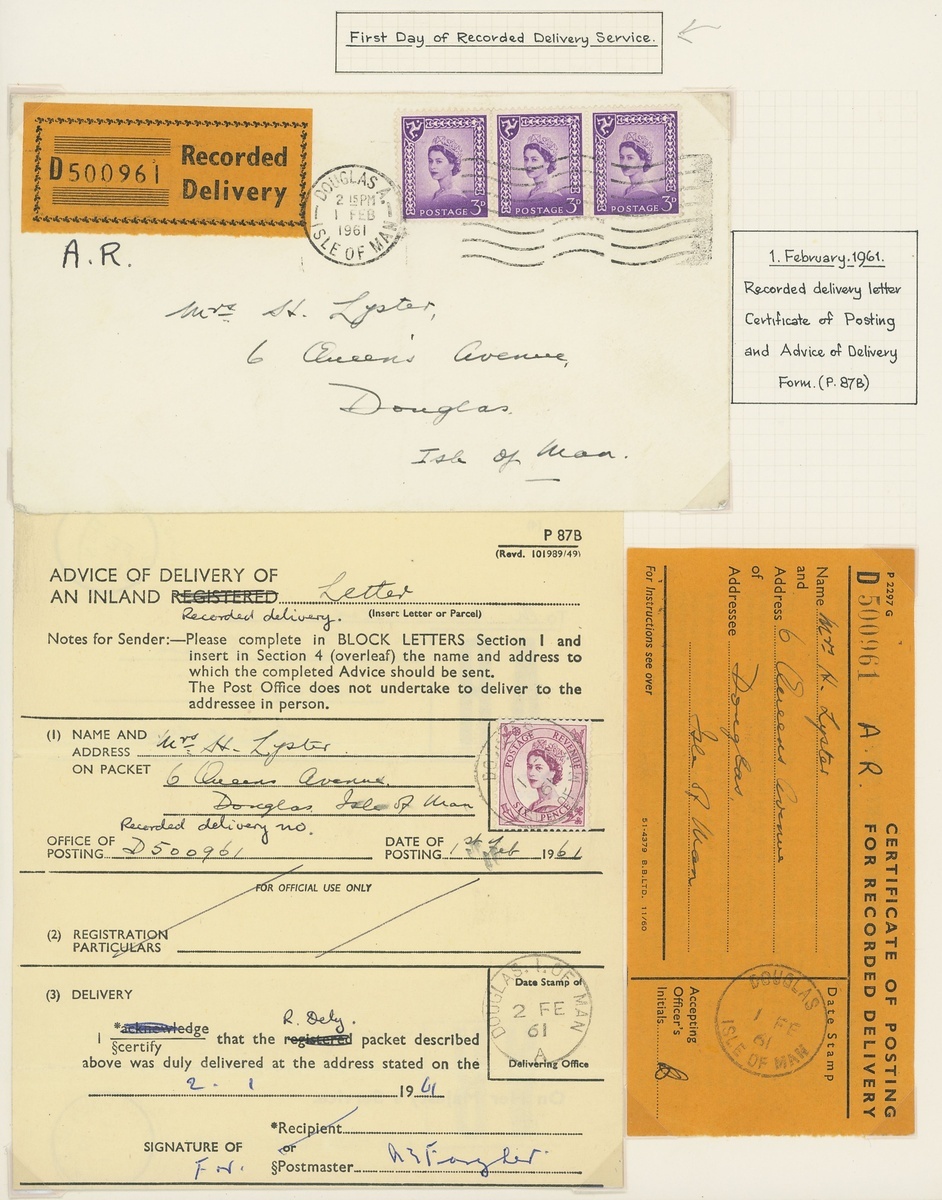 First Day of Recorded Delivery Service.
D 500961
Recorded
Delivery
A.R.
DOUGLAS A.
2 15 PM
1 FEB
1961
ISLE OF MAN
POSTAGE 3D
POSTAGE 3D
POSTAGE 3D
Mrs H. Lyster,
6 Queen's Avenue,
Douglas.
Isle of Man.
1. February.1961.
Recorded delivery letter
Certificate of Posting
and Advice of Delivery
Form. (P. 87B)
P 87B
(Revd. 101989/49)
ADVICE OF DELIVERY OF
AN INLAND REGISTERED Letter
Recorded delivery. (Insert Letter or Parcel)
Notes for Sender:—Please complete in BLOCK LETTERS Section 1 and
insert in Section 4 (overleaf) the name and address to
which the completed Advice should be sent.
The Post Office does not undertake to deliver to the
addressee in person.
(1) NAME AND
ADDRESS Mrs H. Lyster.
ON PACKET 6 Queens Avenue.
Douglas Isle of Man
POSTAGE REVENUE
SIX PENCE
Recorded delivery no.
OFFICE OF
POSTING D500961
DATE OF
POSTING 1st Feb 1961
FOR OFFICIAL USE ONLY
(2) REGISTRATION
PARTICULARS
(3) DELIVERY
Date Stamp of
DOUGLAS. I. OF MAN
2 FE
61
A
Delivering Office
*acknowledge R. Dely.
I that the registered packet described
§certify
above was duly delivered at the address stated on the
2 . 1 1961
*Recipient
SIGNATURE OF or
§Postmaster
P 2297 G
D 500961 A.R.
CERTIFICATE OF POSTING
FOR RECORDED DELIVERY
Name Mrs H. Lyster
and
Address 6 Queens Avenue
of
Addressee Douglas.
Isle of Man.
For Instructions see over
51-4379 B.B.LTD. 11/60
Date Stamp
DOUGLAS
1 FE
61
ISLE OF MAN
Accepting
Officer's
Initials